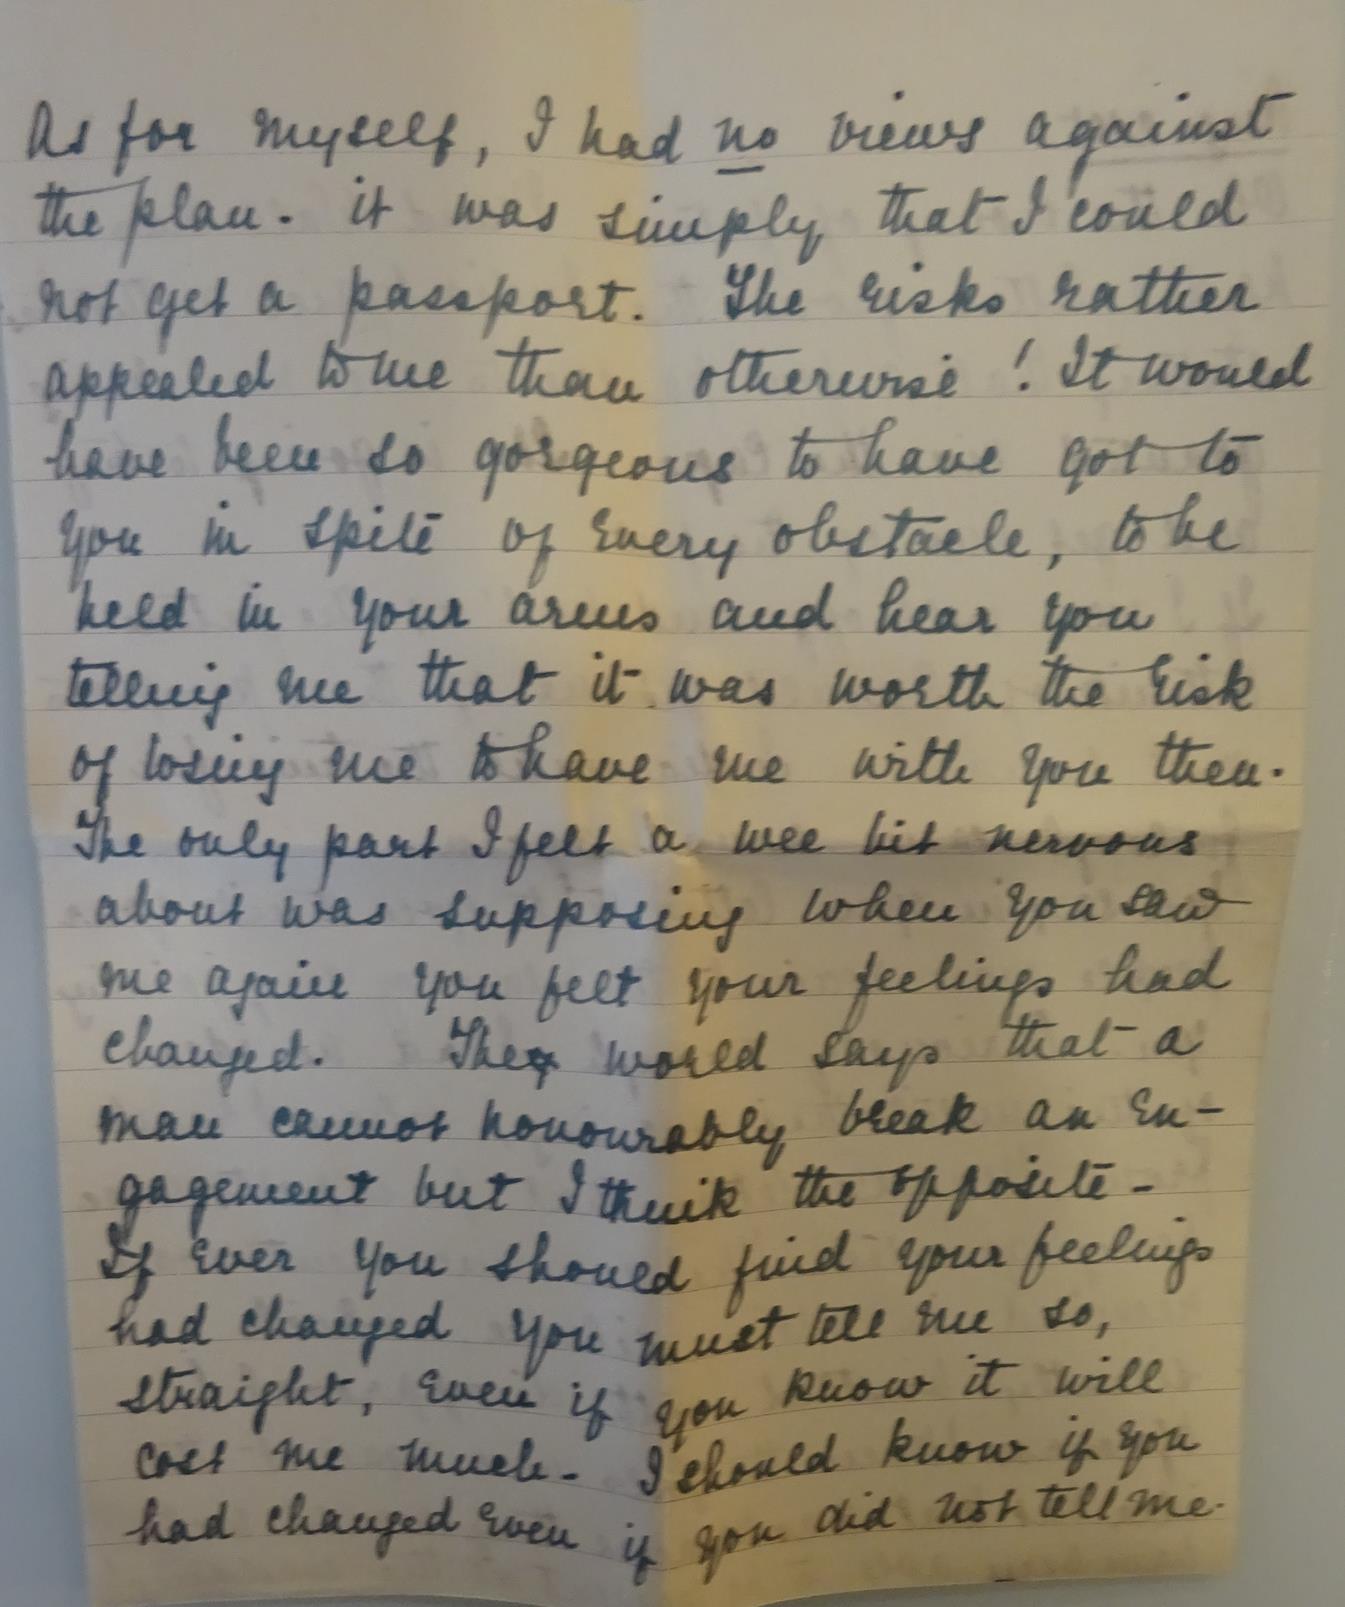 As for myself, I had no views against
the plan. it was simply that I could
not get a passport. The risks rather
appealed to me than otherwise! It would
have been so gorgeous to have got to
you in spite of every obstacle, to be
held in your arms and hear you
telling me that it was worth the risk
of losing me to have me with you then.
The only part I felt a wee bit nervous
about was supposing when you saw
me again you felt your feelings had
changed. The world says that a
man cannot honourably break an en-
gagement but I think the opposite -
If ever you should find your feelings
had changed you must tell me so,
straight, even if you know it will
cost me much - I should know if you
had changed even if you did not tell me.